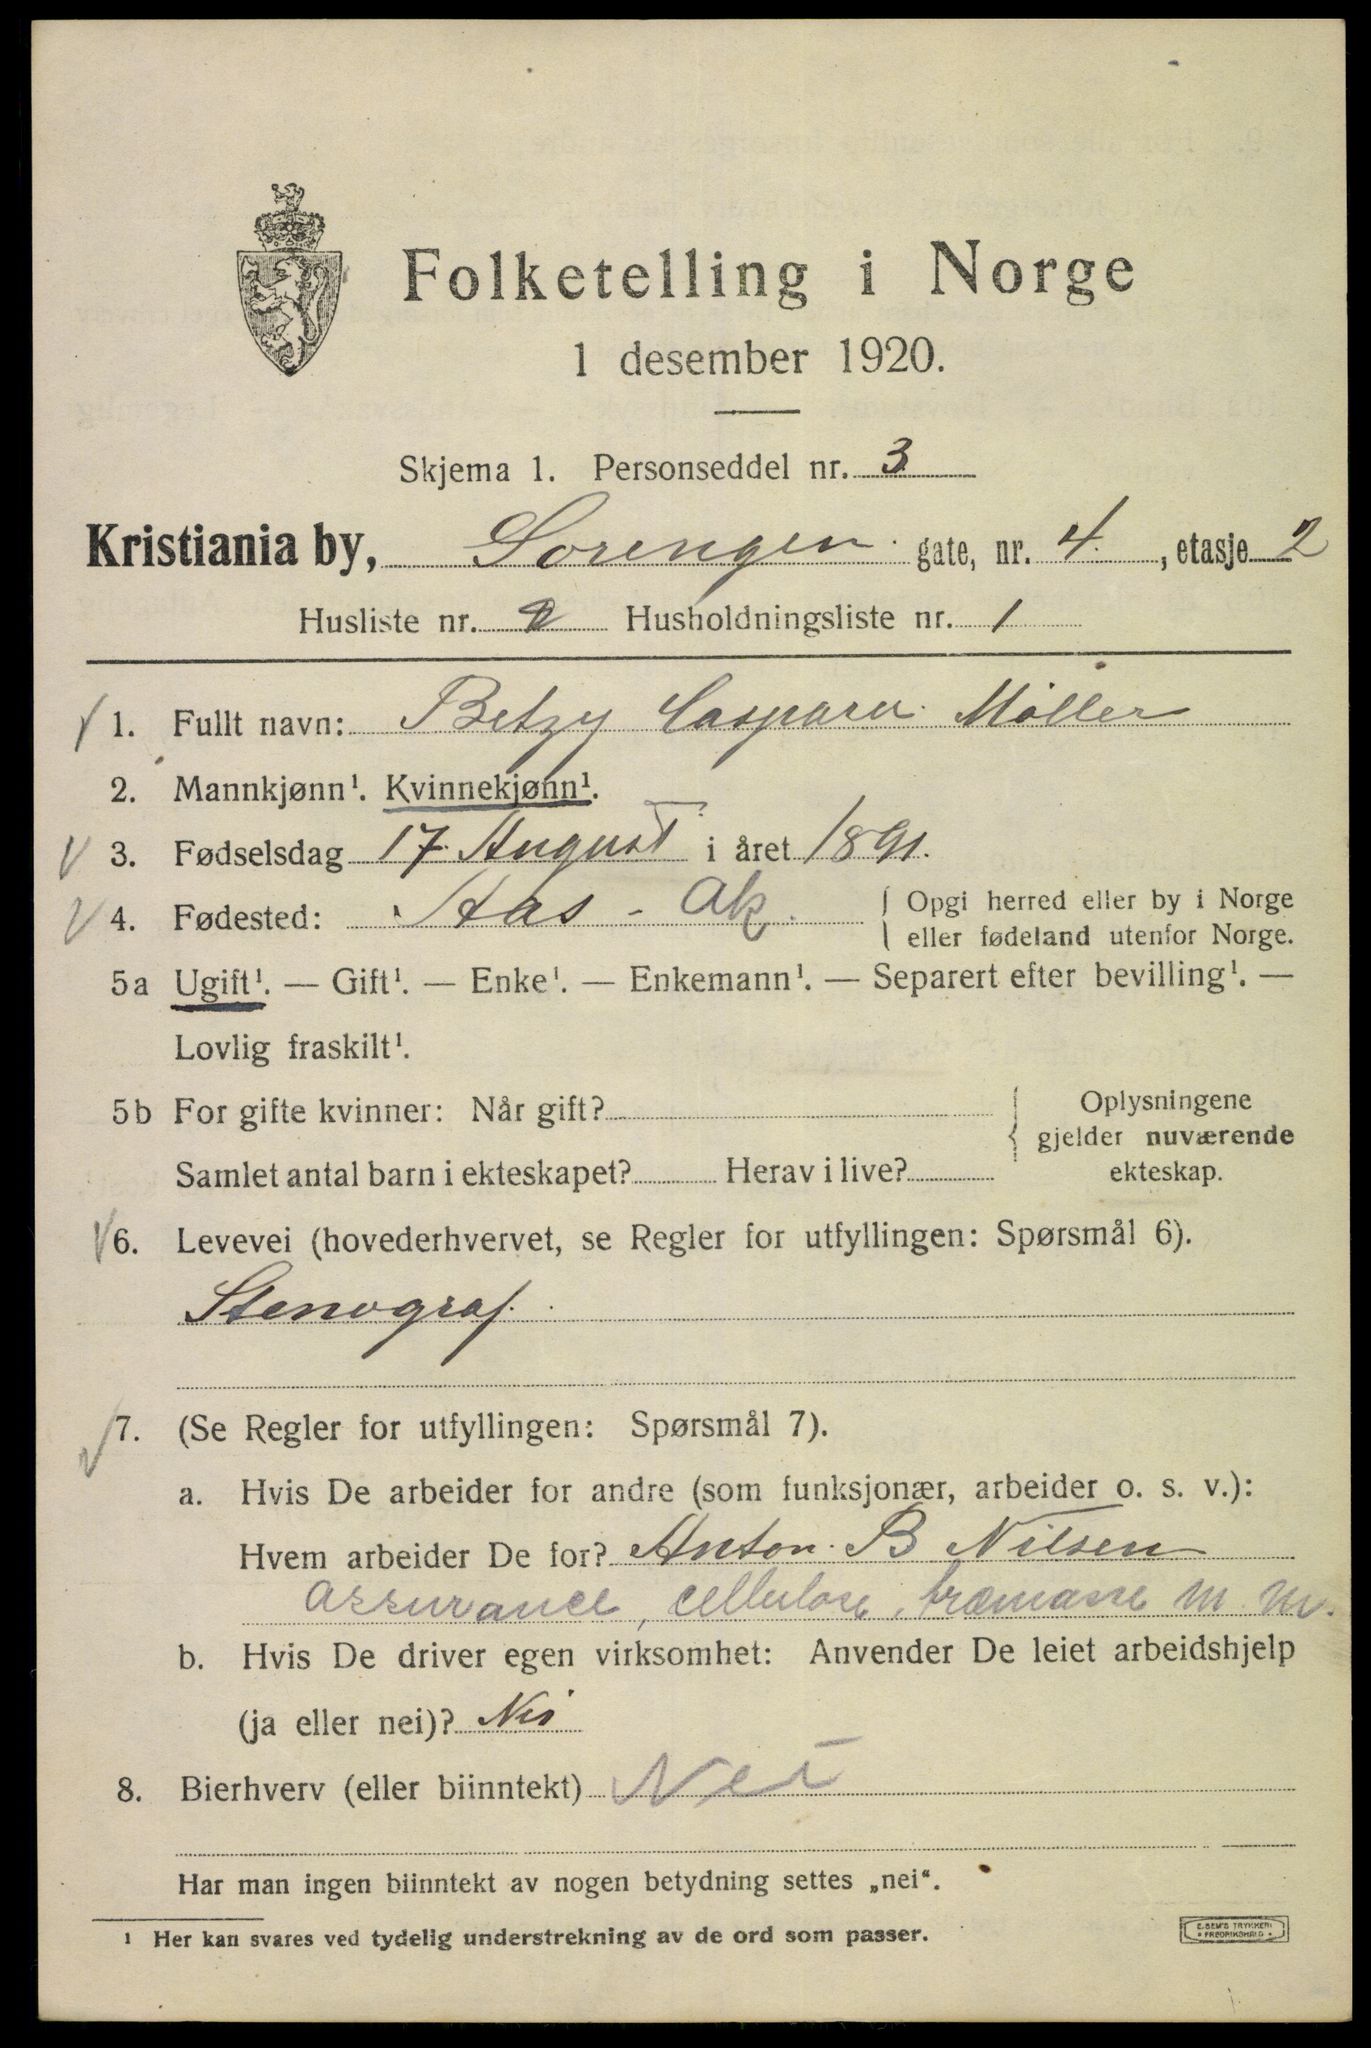 Folketelling i Norge
1 desember 1920.
Skjema 1. Personseddel nr. 3
Kristiania by, Sorengen gate, nr. 4. , etasje 2
Husliste nr. 2 Husholdningsliste nr. 1
1. Fullt navn: Betzy Caspara Møller
2. Mannkjønn¹. Kvinnekjønn¹.
3. Fødselsdag 17 August i året 1891.
4. Fødested: Aas - Ak. Opgi herred eller by i Norge
eller fødeland utenfor Norge.
5a Ugift¹. — Gift¹. — Enke¹. — Enkemann¹. — Separert efter bevilling¹. —
Lovlig fraskilt¹.
5b For gifte kvinner: Når gift?
Samlet antal barn i ekteskapet? Herav i live?
Oplysningene
gjelder nuværende
ekteskap.
6. Levevei (hovederhvervet, se Regler for utfyllingen: Spørsmål 6).
Stenograf.
7. (Se Regler for utfyllingen: Spørsmål 7).
a. Hvis De arbeider for andre (som funksjonær, arbeider o. s. v.):
Hvem arbeider De for? Anton B Nilsen
assurance, cellulose, træmasse m m.
b. Hvis De driver egen virksomhet: Anvender De leiet arbeidshjelp
(ja eller nei)? Nei
8. Bierhverv (eller biinntekt) Nei
Har man ingen biinntekt av nogen betydning settes „nei“.
¹ Her kan svares ved tydelig understrekning av de ord som passer.
E. SEM'S TRYKKERI
FREDRIKSHALD